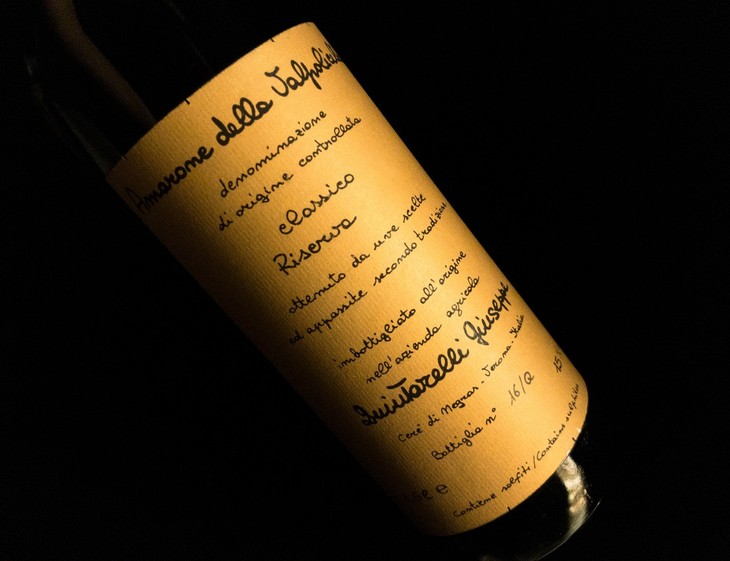 Amarone della Valpolicella
denominazione
di origine controllata
classico
Riserva
ottenuto da uve scelte
ed appassite secondo tradizione
imbottigliato all'origine
nell'azienda agricola
Quintarelli Giuseppe
Cerè di Negrar - Verona - Italia
Bottiglia n° 16/Q 15
e
Contiene solfiti / Contains sulphites